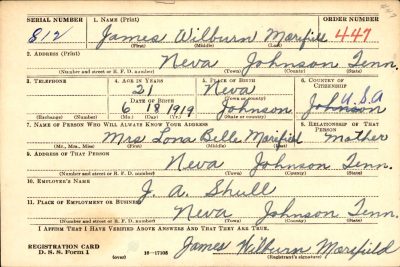 SERIAL NUMBER 1. NAME (Print) ORDER NUMBER
812 James Wilburn Marifield 447
(First) (Middle) (Last)
2. ADDRESS (Print)
Neva Johnson Tenn.
(Number and street or R. F. D. number) (Town) (County) (State)
3. TELEPHONE 4. AGE IN YEARS 5. PLACE OF BIRTH 6. COUNTRY OF CITIZENSHIP
21 Neva
DATE OF BIRTH (Town or county) U.S.A
6 18 1919 Johnson Johnson
(Exchange) (Number) (Mo.) (Day) (Yr.) (State or country)
7. NAME OF PERSON WHO WILL ALWAYS KNOW YOUR ADDRESS 8. RELATIONSHIP OF THAT PERSON
Mrs Lona Belle Marifield Mother
(Mr., Mrs., Miss) (First) (Middle) (Last)
9. ADDRESS OF THAT PERSON
Neva Johnson Tenn.
(Number and street or R. F. D. number) (Town) (County) (State)
10. EMPLOYER'S NAME
J. A. Shull
11. PLACE OF EMPLOYMENT OR BUSINESS
Neva Johnson Tenn.
(Number and street or R. F. D. number) (Town) (County) (State)
I AFFIRM THAT I HAVE VERIFIED ABOVE ANSWERS AND THAT THEY ARE TRUE.
REGISTRATION CARD James Wilburn Marifield
D. S. S. Form 1 (over) 16—17105 (Registrant's signature)